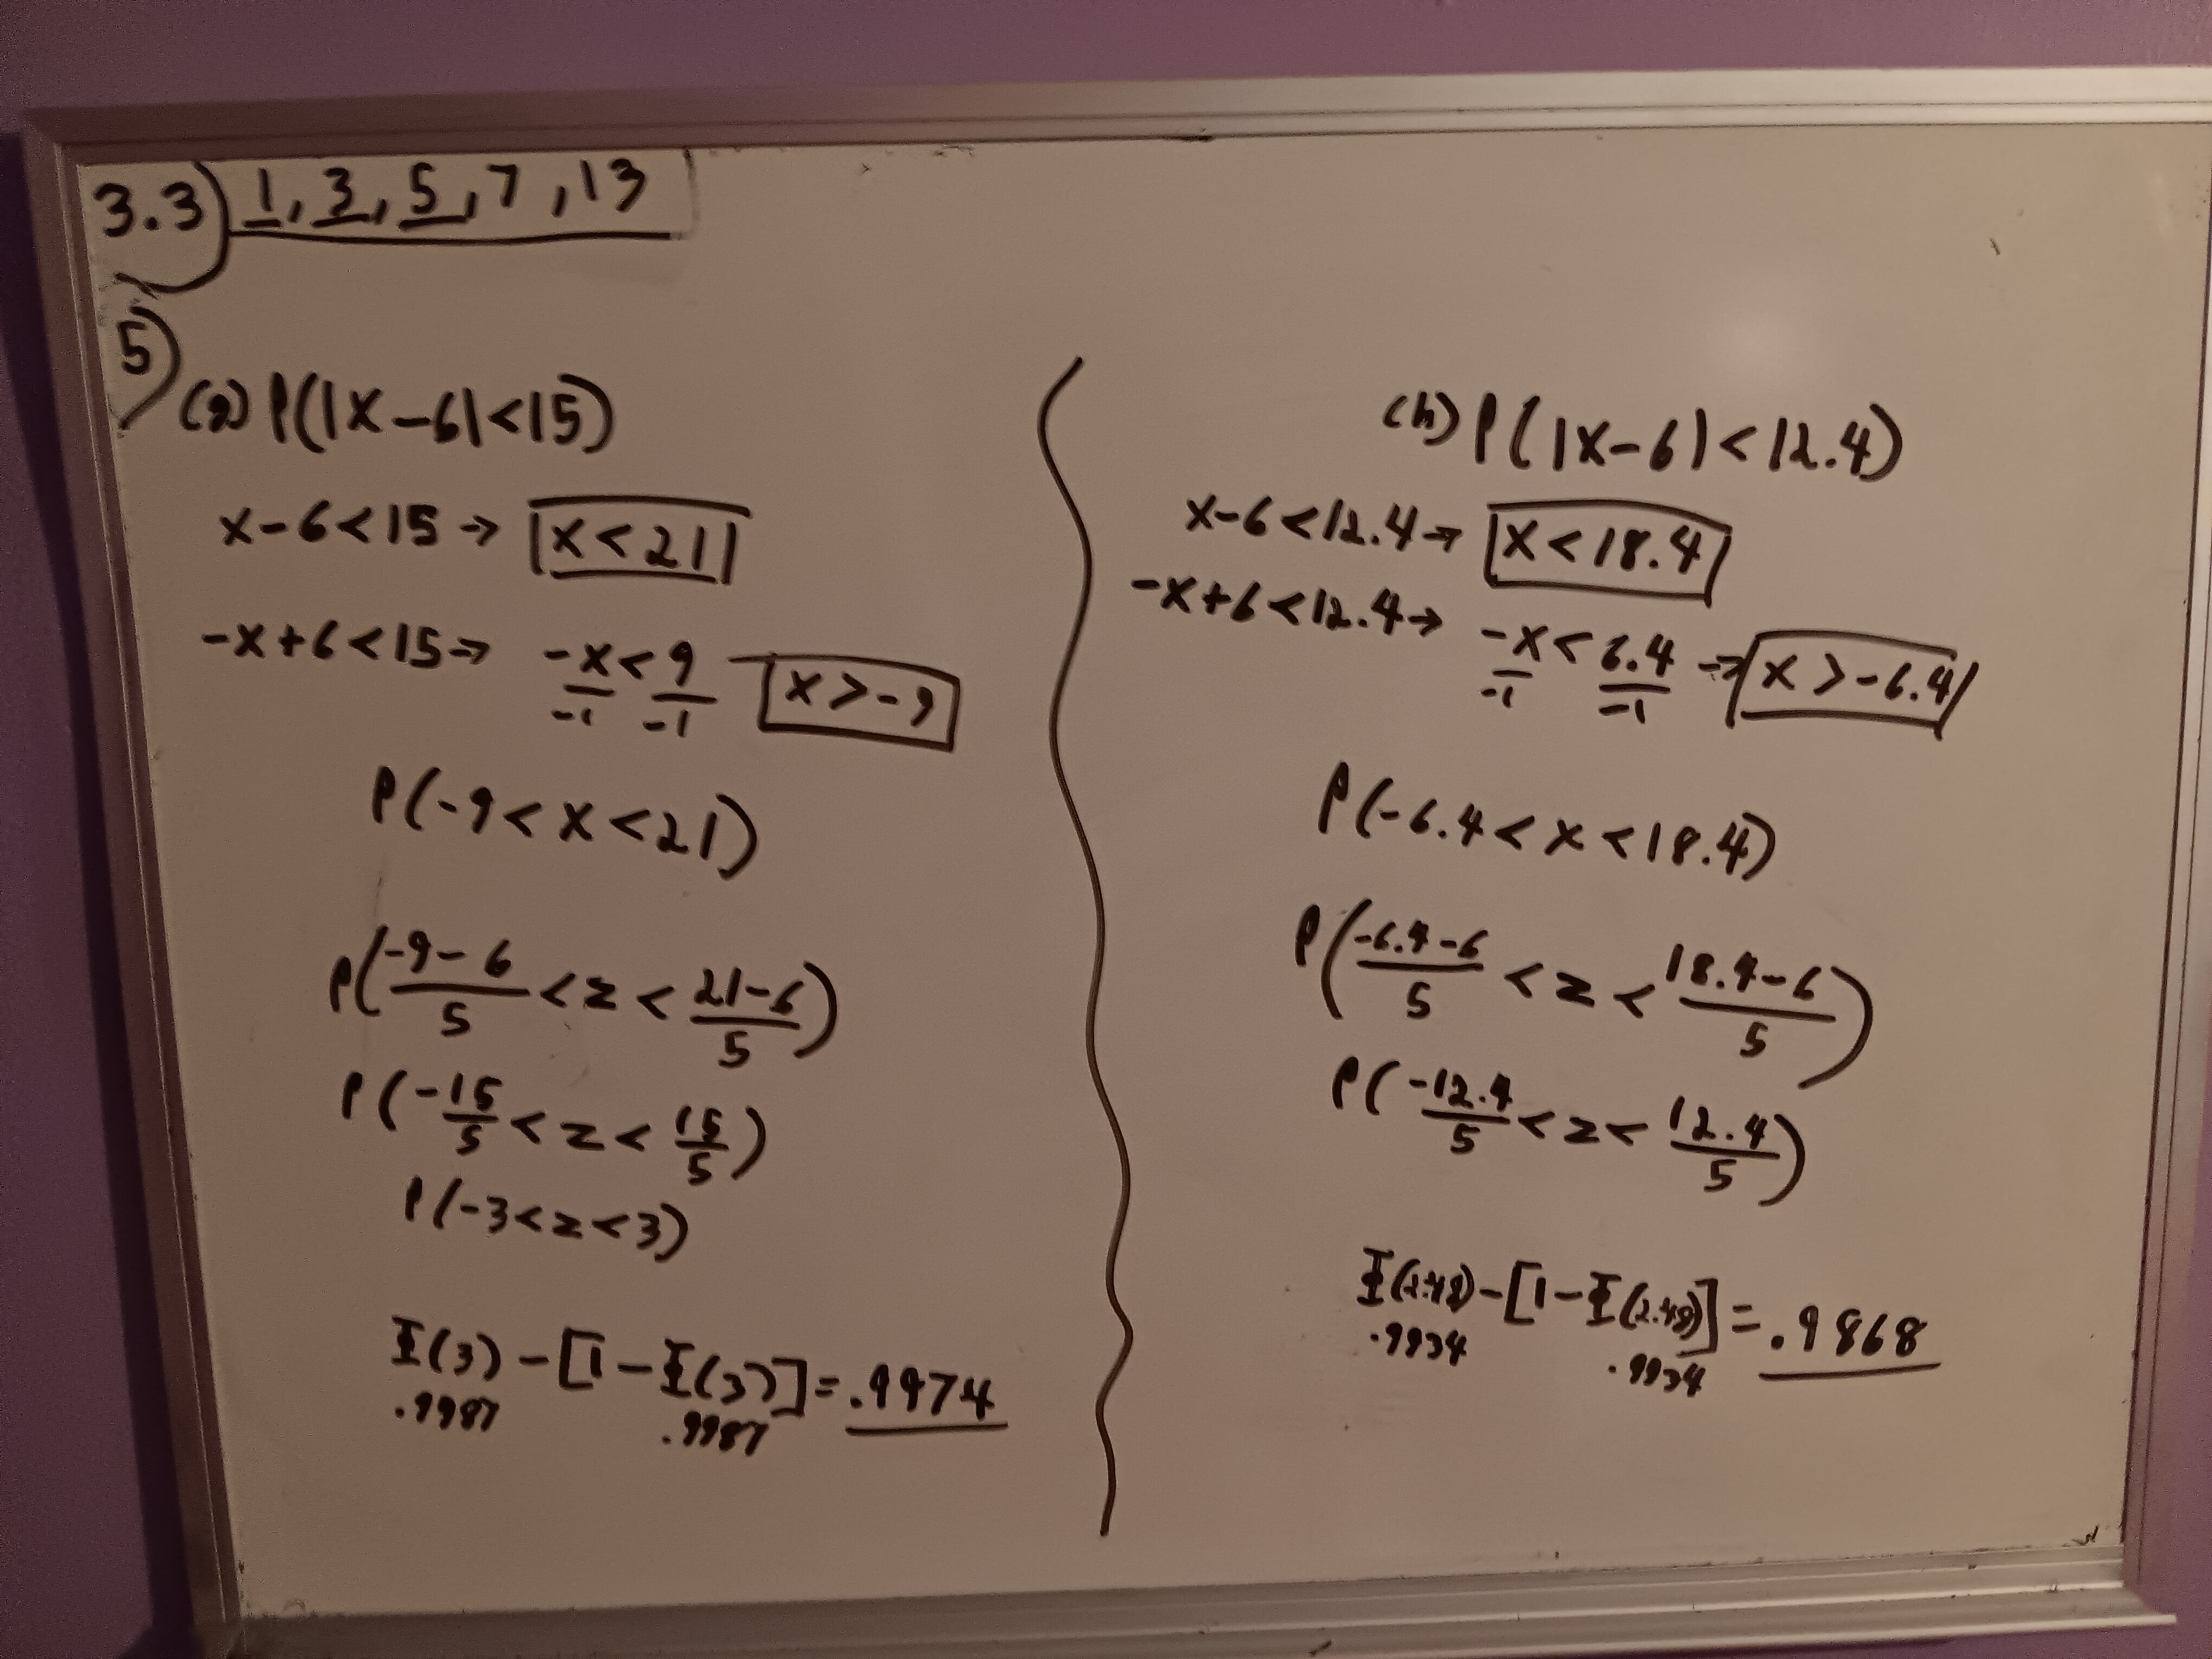 3.3) 1, 3, 5, 7, 13
5)
(g) P(|X-6|<15)
x-6<15→ x<21
-x+6<15→ -x/-1 < 9/-1 x>-9
P(-9<x<21)
P((-9-6)/5 <z< (21-6)/5)
P(-15/5 <z< 15/5)
P(-3<z<3)
Φ(3)-[1-Φ(3)]=.9974
.9987 .9987
(h) P(|X-6|<12.4)
x-6<12.4→ x<18.4
-x+6<12.4→ -x/-1 < 6.4/-1 → x>-6.4
P(-6.4<x<18.4)
P((-6.4-6)/5 <z< (18.4-6)/5)
P(-12.4/5 <z< 12.4/5)
Φ(2.48)-[1-Φ(2.48)]=.9868
.9934 .9934